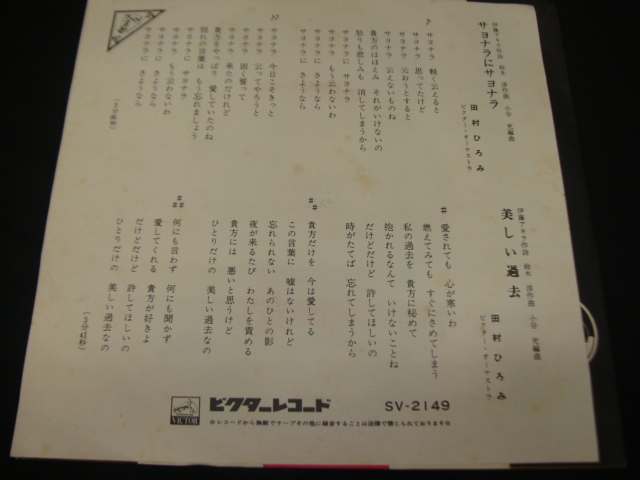 サヨナラにサヨナラ
伊藤アキラ作詩 鈴木 淳作曲 小谷 充編曲
田村ひろみ
ビクター・オーケストラ
サヨナラ 軽く云えると
サヨナラ 思ってたけど
サヨナラ 云おうとすると
サヨナラ 云えないものね
貴方のほほえみ それがいけないの
怒りも悲しみも 消してしまうから
サヨナラに サヨナラ
サヨナラ もう云わないわ
サヨナラに さようなら
サヨナラに さようなら
サヨナラ 今日こそきっと
サヨナラ 云ってやろうと
サヨナラ 固く誓って
サヨナラ 来たのだけれど
貴方をやっぱり 愛していたのね
別れの言葉は もう忘れましょう
サヨナラに サヨナラ
サヨナラ もう云わないわ
サヨナラに さようなら
サヨナラに さようなら
美しい過去
伊藤アキラ作詩 鈴木 淳作曲 小谷 充編曲
田村ひろみ
ビクター・オーケストラ
愛されても 心が寒いわ
燃えてみても すぐにさめてしまう
私の過去を 貴方に秘めて
抱かれるなんて いけないことね
だけどだけど 許してほしいの
時がたてば 忘れてしまうから
貴方だけを 今は愛してる
この言葉に 嘘はないけれど
忘れられない あのひとの影
夜が来るたび わたしを責める
貴方には 悪いと思うけど
ひとりだけの 美しい過去なの
何にも言わず 何にも聞かず
愛してくれる 貴方が好きよ
だけどだけど 許してほしいの
ひとりだけの 美しい過去なの
(2分41秒)
VICTOR
ビクターレコード SV-2149
☆レコードから無断でテープその他に録音することは法律で禁じられております☆